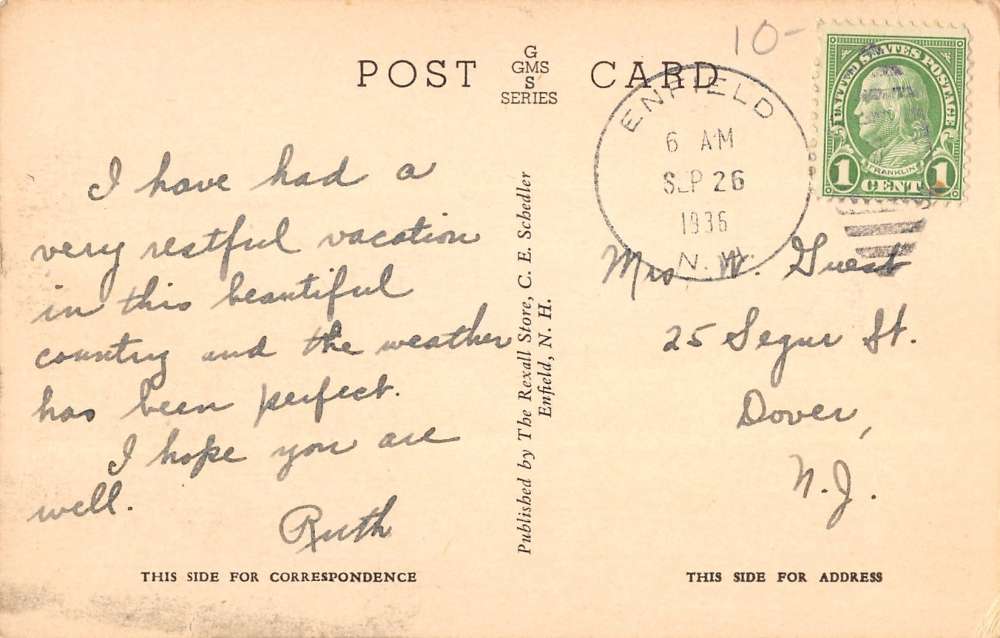 10-
POST CARD
G
GMS
S
SERIES
UNITED STATES POSTAGE
FRANKLIN
1 CENT 1
ENFIELD
6 AM
SEP 26
1936
N.
I have had a
very restful vacation
in this beautiful
country and the weather
has been perfect.
I hope you are
well.
Ruth
Published by The Rexall Store, C. E. Schedler
Enfield, N. H.
Mrs W. Guest
25 Segur St.
Dover,
N.J.
THIS SIDE FOR CORRESPONDENCE
THIS SIDE FOR ADDRESS